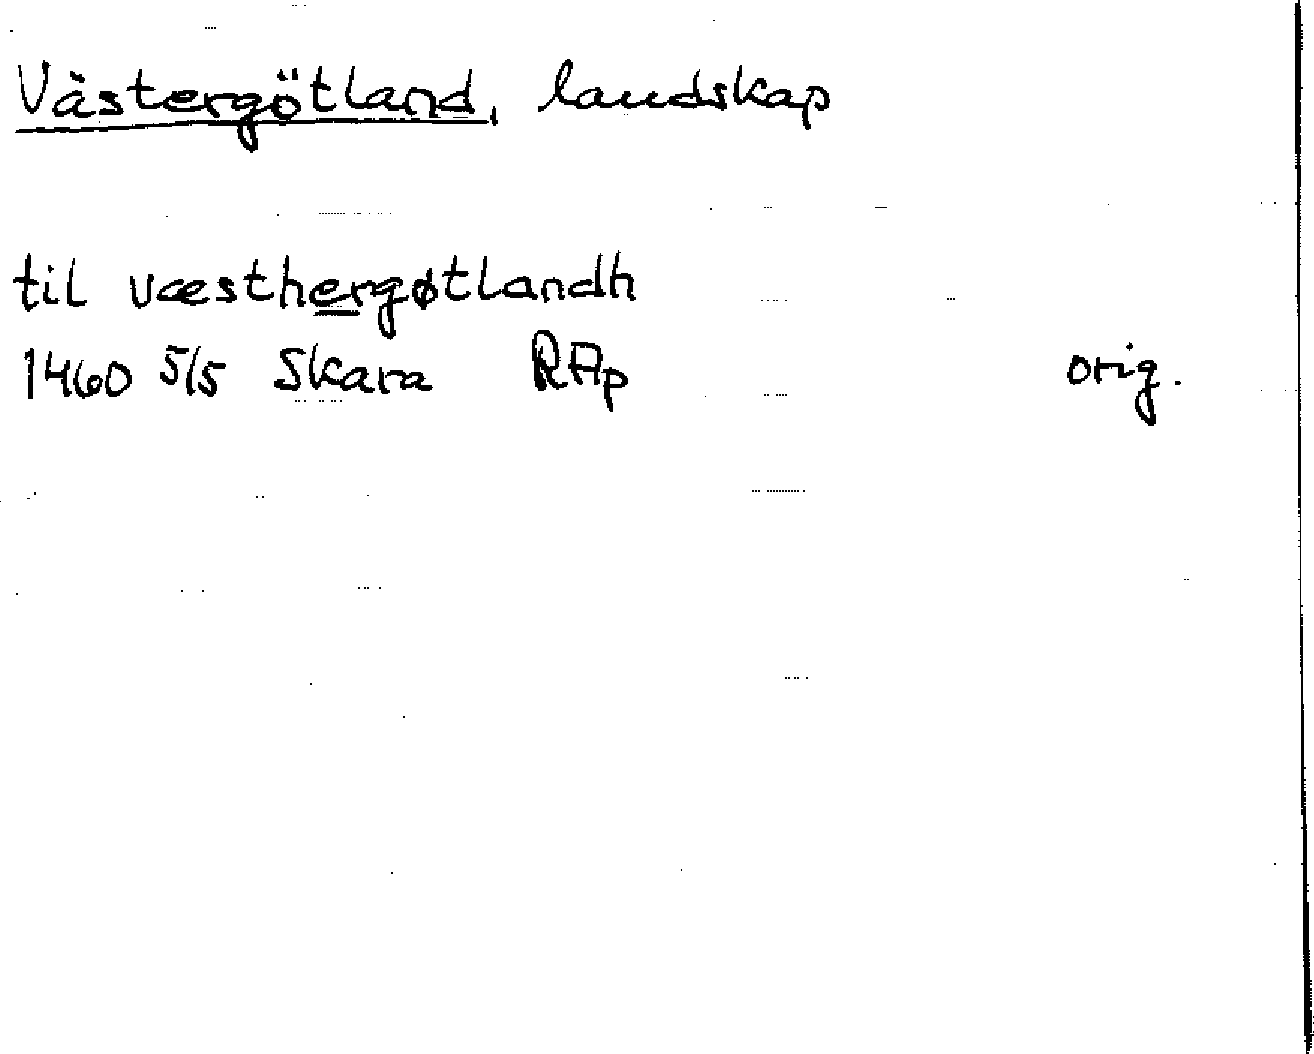 Västergötland, landskap
til væsthergøtlandh
1460 5/5 Skara RAp orig.